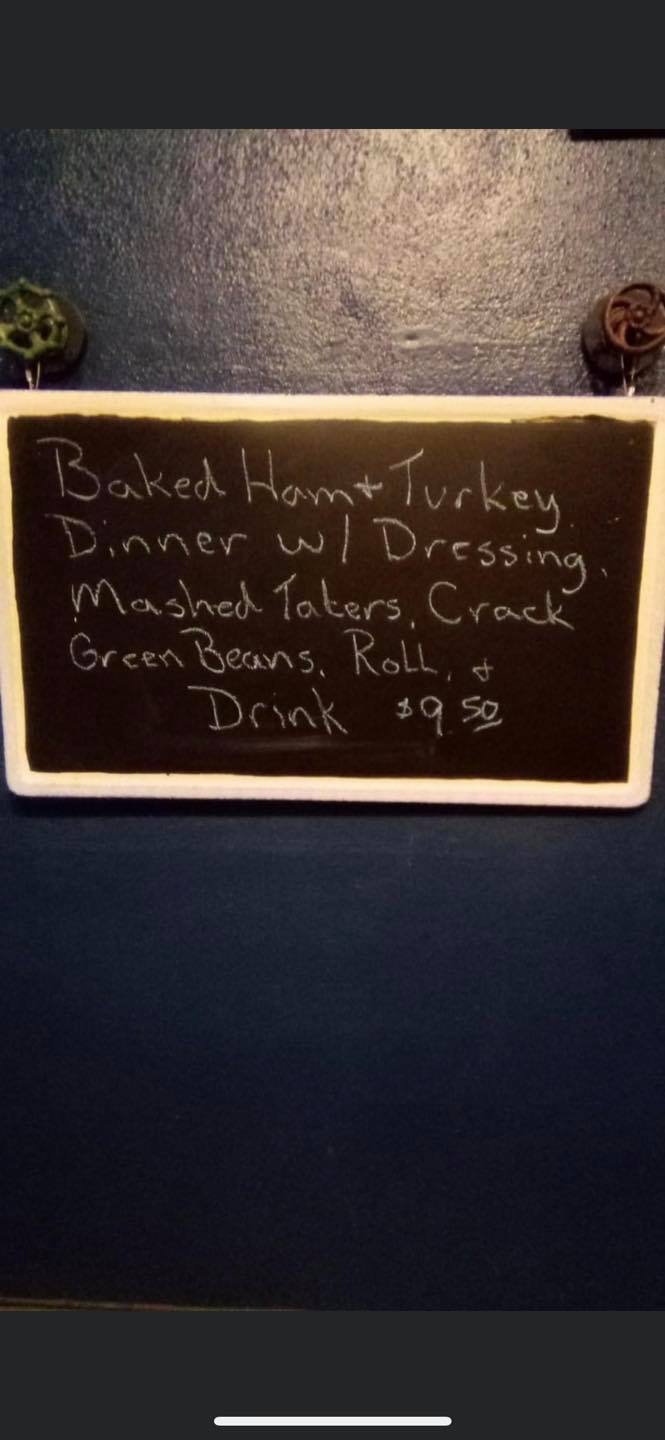 Baked Ham + Turkey
Dinner w/ Dressing,
Mashed Taters, Crack
Green Beans, Roll, &
Drink $9.50